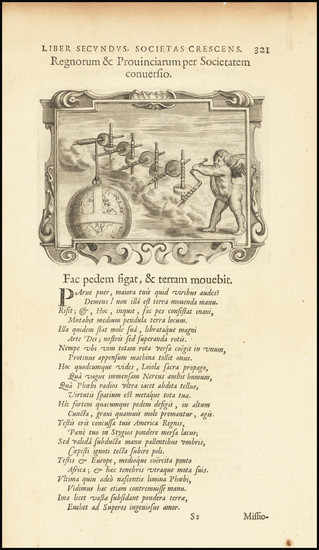 LIBER SECVNDVS. SOCIETAS CRESCENS. 321
Regnorum & Prouinciarum per Societatem
conuersio.
Fac pedem figat, & terram mouebit.
PArue puer, maiora tuis quid viribus audes?
Demens! non illa est terra mouenda manu.
Resist; &, Hoc, inquit, fac pes consistat inani,
Mutabit medium pendula terra locum.
Illa quidem stat mole suâ, librataque magni
Arte Dei; nostris sed superanda rotis.
Nempe vbi vim totam rota versa coëgit in vnum,
Protinus appensum machina tollit onus.
Hoc quodcumque vides, Loiola sacra propago,
Quà vagus immensum Nereus ambit humum,
Quà Phœbi radios vltra iacet abdita tellus,
Virtutis spatium est metaque tota tuæ.
Hîc fortem quacumque pedem defigis, in altum
Cuncta, graui quamuis mole premantur, agis.
Testis erit concussa tuis America Regnis,
Pænè tuo in Stygios pondere mersa lacus;
Sed validâ subducta manu pallentibus vmbris,
Cœpisti ignoti tecta subire poli.
Testis & Europe, medioque coërcita ponto
Africa; & hac tenebris vtraque mota suis.
Vltima quin adeò nascentis limina Phœbi,
Vidimus hac etiam contremuisse manu.
Ima licet vastæ subsidant pondera terræ,
Euehet ad Superos ingeniosus amor.
Ss Missio-